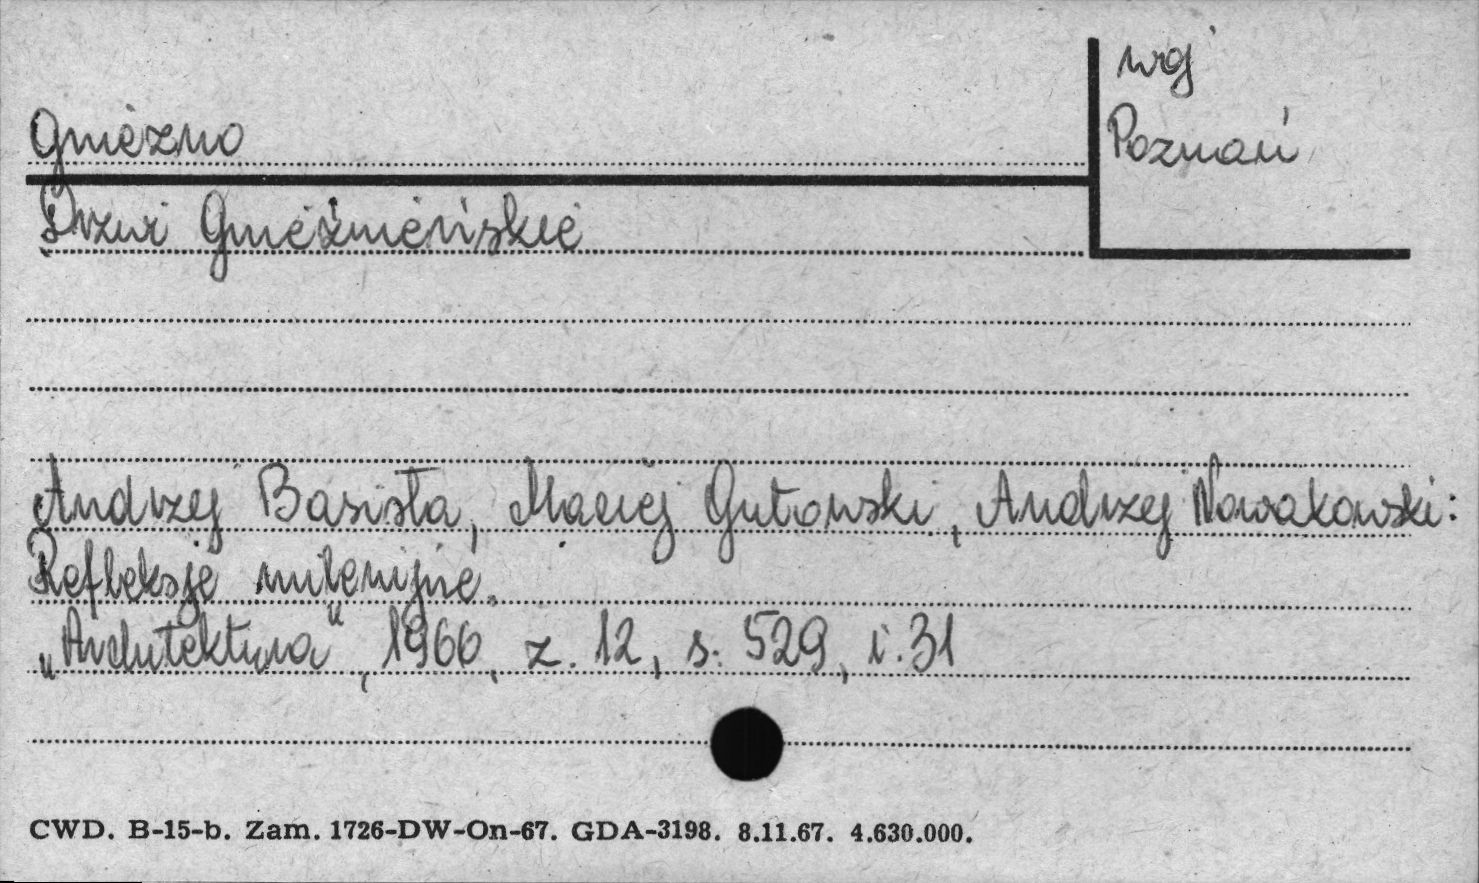 woj
Poznań
Gniezno
Drzwi Gnieźnieńskie
Andrzej Basista, Maciej Gutowski, Andrzej Nowakowski:
Refleksje milenijne.
„Architektura", 1966, z. 12, s. 529, i. 31
CWD. B-15-b. Zam. 1726-DW-On-67. GDA-3198. 8.11.67. 4.630.000.